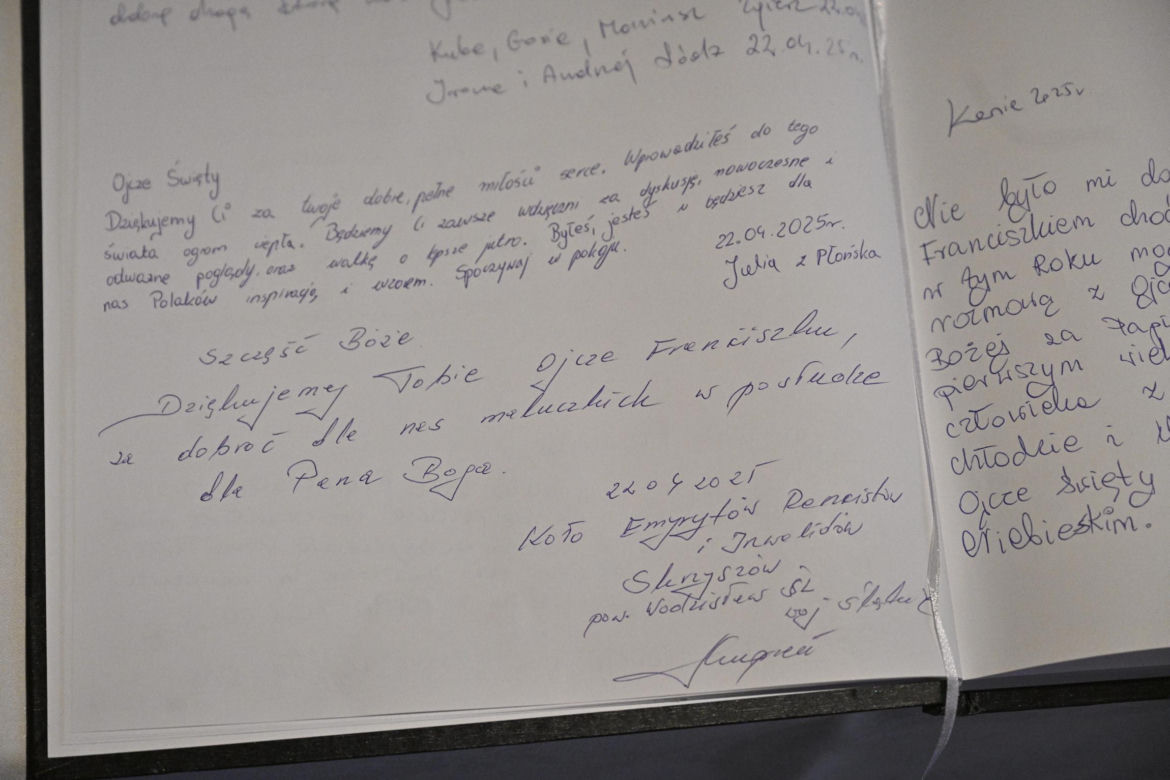 dobrą drogą
Kuba, Gosia, Zgierz 22.04
Irena i Andrzej Łódź 22.04.25r.
Ojcze Święty
Dziękujemy Ci za twoje dobre, pełne miłości serce. Wprowadziłeś do tego
świata ogrom ciepła. Będziemy Ci zawsze wdzięczni za dyskusje, nowoczesne i
odważne poglądy, oraz walkę o lepsze jutro. Byłeś, jesteś i będziesz dla
nas Polaków inspiracją i wzorem. Spoczywaj w pokoju.
22.04.2025r.
Julia z Płońska
Szczęść Boże
Dziękujemy Tobie Ojcze Franciszku,
za dobroć dla nas maluczkich w posłudze
dla Pana Boga.
22 04 2025
Koło Emerytów Rencistów
i Inwalidów
Skrzyszów
pow. Wodzisław Śl
woj śląskie
Kasia 2025r
Nie było mi da
Franciszkiem cho
w tym Roku mo
rozmową z Ojc
Bożej za Papi
pierwszym wiel
człowieka z
chłodzie i
Ojcze Święty
Niebieskim.